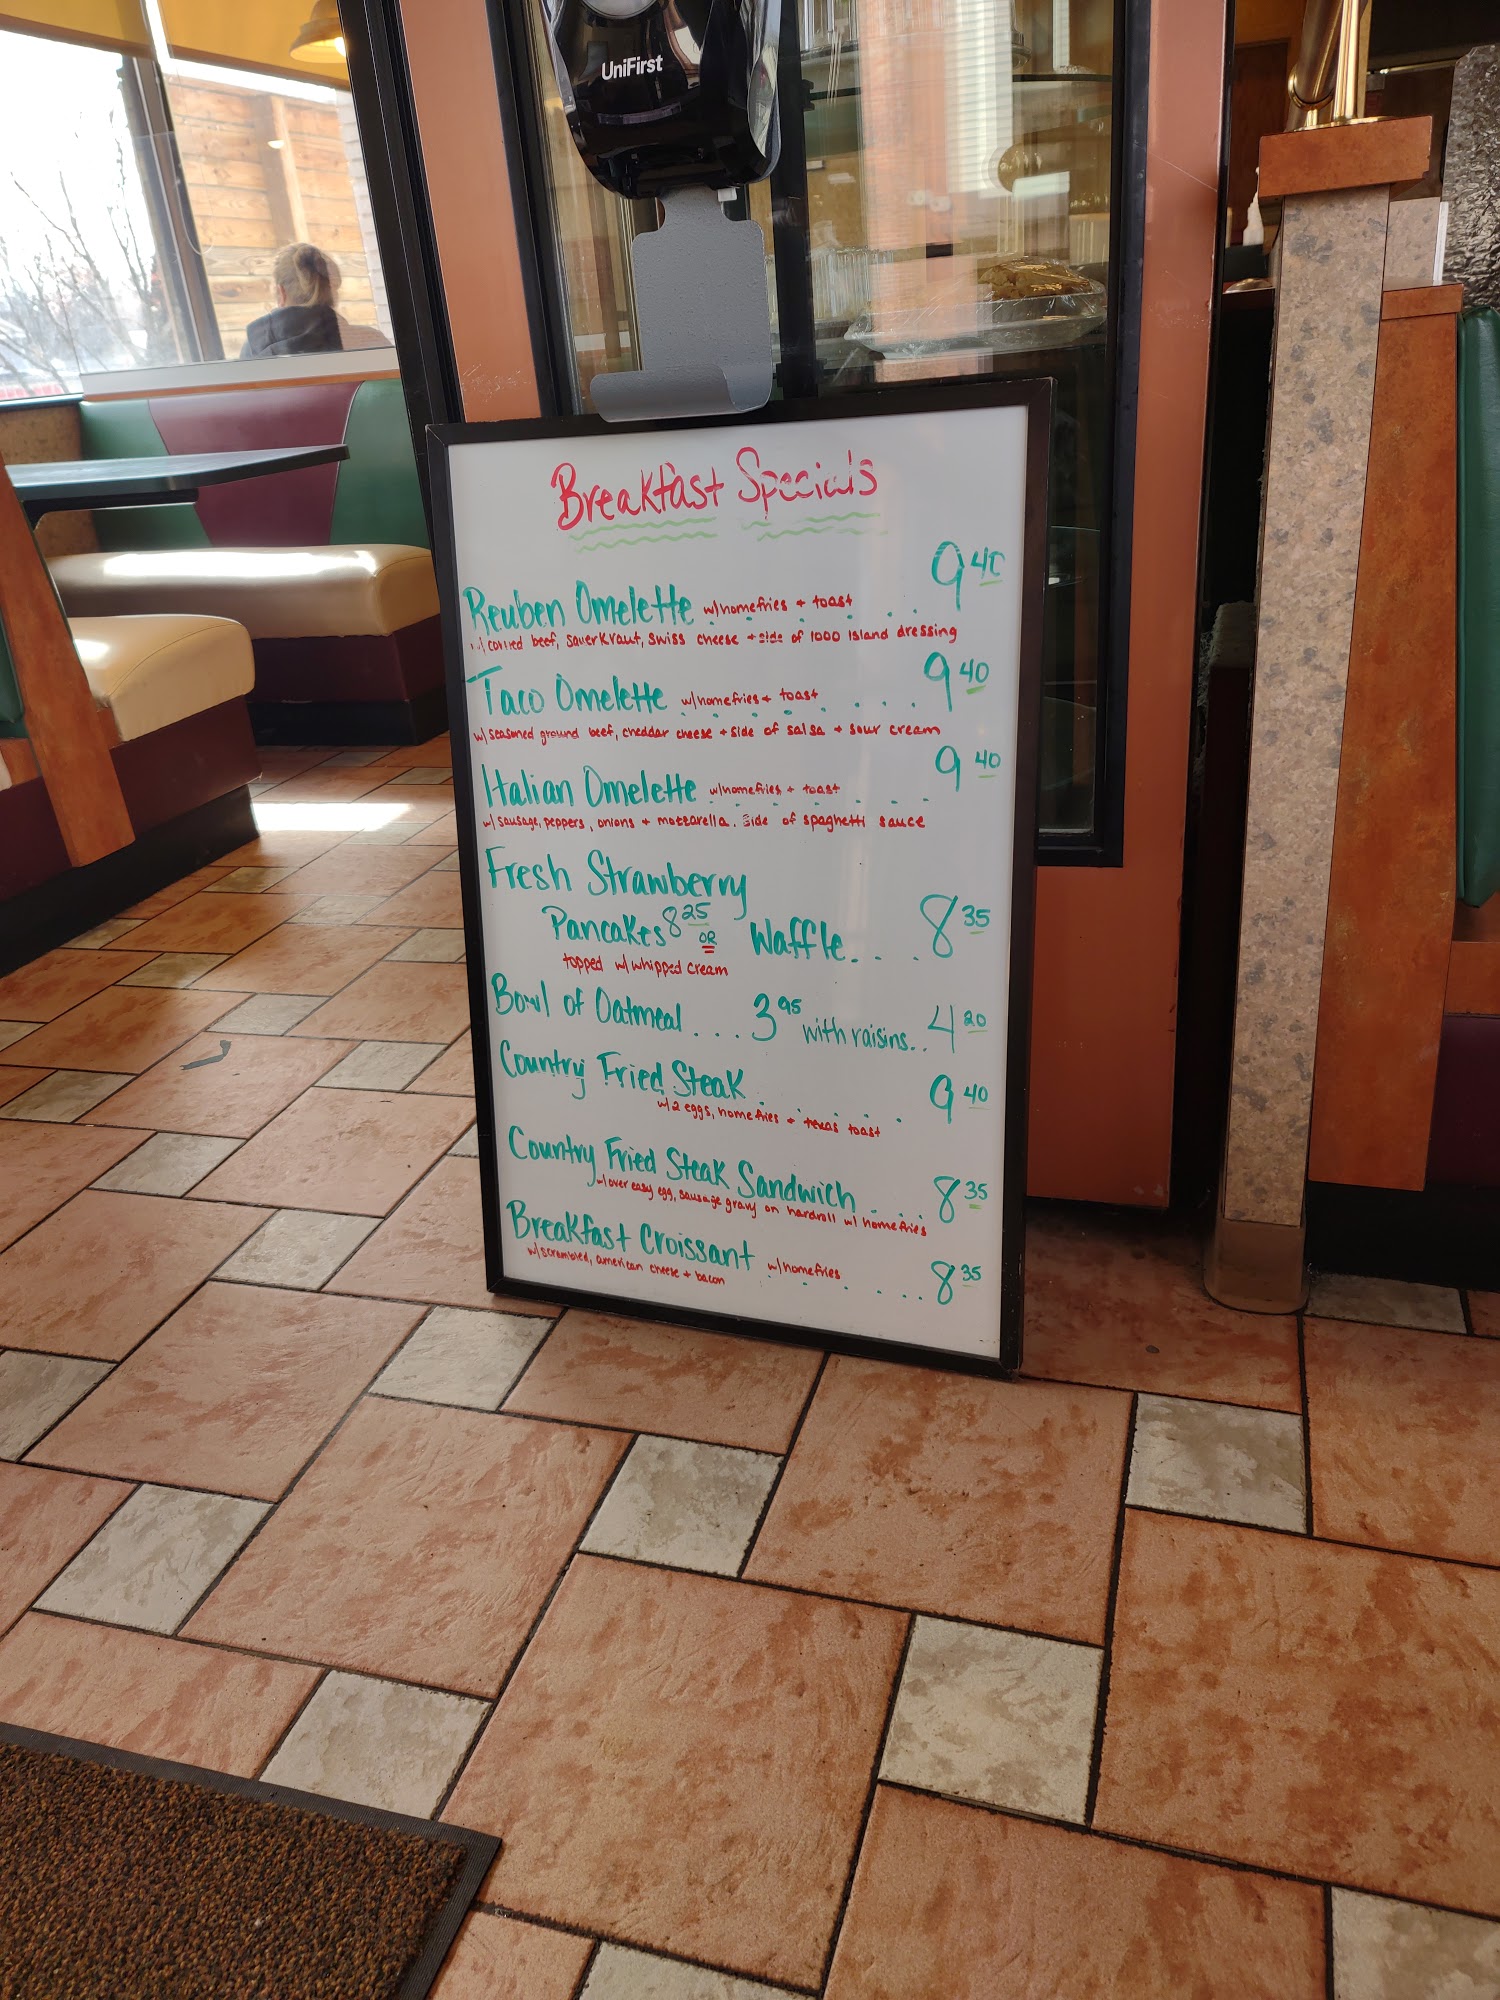 UniFirst
Breakfast Specials
Reuben Omelette w/homefries + toast . . 9 40
w/ corned beef, sauerkraut, swiss cheese + side of 1000 island dressing
Taco Omelette w/homefries + toast . . . . 9 40
w/ seasoned ground beef, cheddar cheese + side of salsa + sour cream
Italian Omelette w/homefries + toast . . . 9 40
w/ sausage, peppers, onions + mozzarella. side of spaghetti sauce
Fresh Strawberry
Pancakes 8 25 OR Waffle. . . . 8 35
topped w/ whipped cream
Bowl of Oatmeal . . . 3 95 with raisins. . 4 20
Country Fried Steak . . . . . . 9 40
w/2 eggs, homefries + texas toast
Country Fried Steak Sandwich . . . . 8 35
w/over easy egg, sausage gravy on hardroll w/ homefries
Breakfast Croissant w/homefries . . . . 8 35
w/scrambled, american cheese + bacon